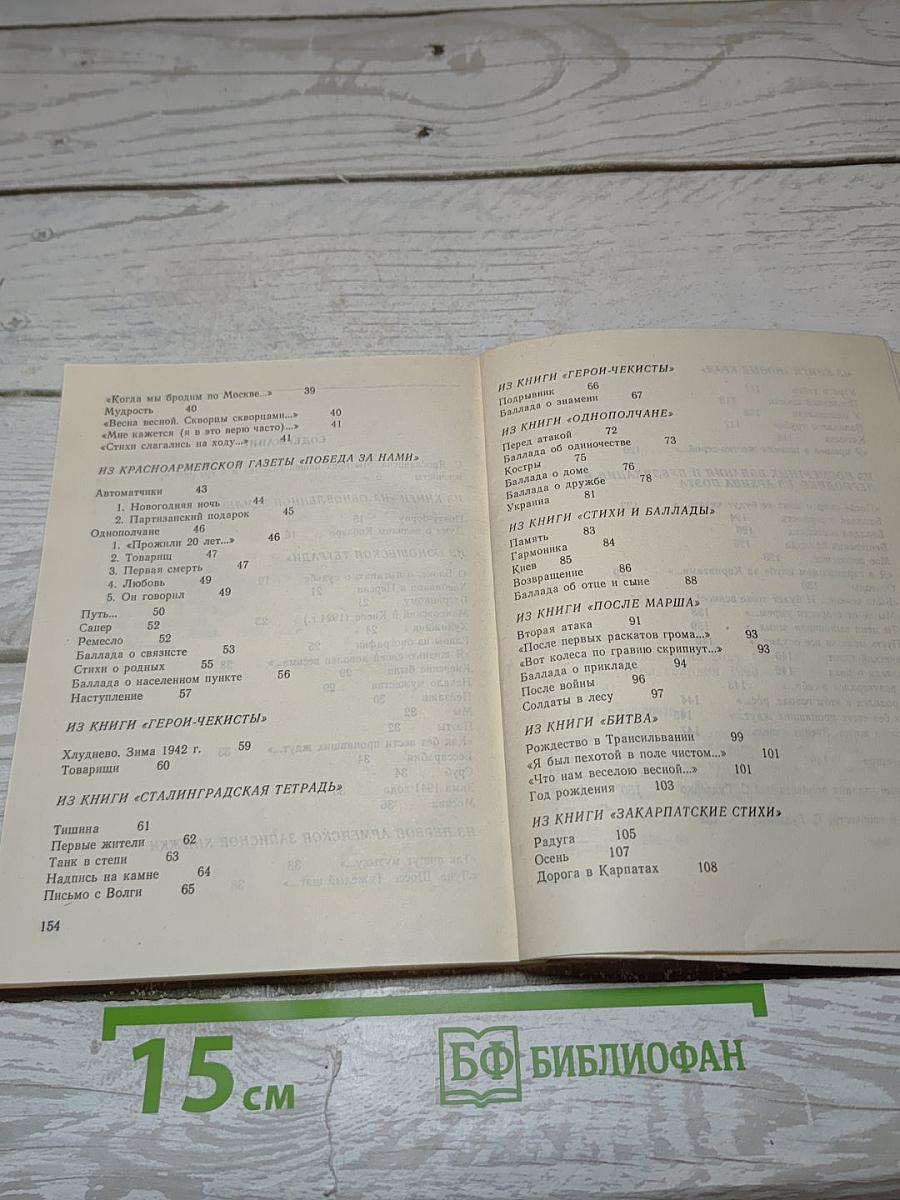 «Когда мы бродим по Москве...» 39
Мудрость 40
«Весна весной. Скворцы скворцами...» 40
«Мне кажется (я в это верю часто)...» 41
«Стихи слагались на ходу...» 41
ИЗ КРАСНОАРМЕЙСКОЙ ГАЗЕТЫ «ПОБЕДА ЗА НАМИ»
Автоматчики 43
1. Новогодняя ночь 44
2. Партизанский подарок 45
Однополчане 46
1. «Прожили 20 лет...» 46
2. Товарищ 47
3. Первая смерть 47
4. Любовь 49
5. Он говорил 49
Путь... 50
Сапер 52
Ремесло 52
Баллада о связисте 53
Стихи о родных 55
Баллада о населенном пункте 56
Наступление 57
ИЗ КНИГИ «ГЕРОИ-ЧЕКИСТЫ»
Хлуднево. Зима 1942 г. 59
Товарищи 60
ИЗ КНИГИ «СТАЛИНГРАДСКАЯ ТЕТРАДЬ»
Тишина 61
Первые жители 62
Танк в степи 63
Надпись на камне 64
Письмо с Волги 65
154
ИЗ КНИГИ «ГЕРОИ-ЧЕКИСТЫ»
Подрывник 66
Баллада о знамени 67
ИЗ КНИГИ «ОДНОПОЛЧАНЕ»
Перед атакой 72
Баллада об одиночестве 73
Костры 75
Баллада о доме 76
Баллада о дружбе 78
Украина 81
ИЗ КНИГИ «СТИХИ И БАЛЛАДЫ»
Память 83
Гармоника 84
Киев 85
Возвращение 86
Баллада об отце и сыне 88
ИЗ КНИГИ «ПОСЛЕ МАРША»
Вторая атака 91
«После первых раскатов грома...» 93
«Вот колеса по гравию скрипнут...» 93
Баллада о прикладе 94
После войны 96
Солдаты в лесу 97
ИЗ КНИГИ «БИТВА»
Рождество в Трансильвании 99
«Я был пехотой в поле чистом...» 101
«Что нам веселою весной...» 101
Год рождения 103
ИЗ КНИГИ «ЗАКАРПАТСКИЕ СТИХИ»
Радуга 105
Осень 107
Дорога в Карпатах 108
15 см
БФ БИБЛИОФАН